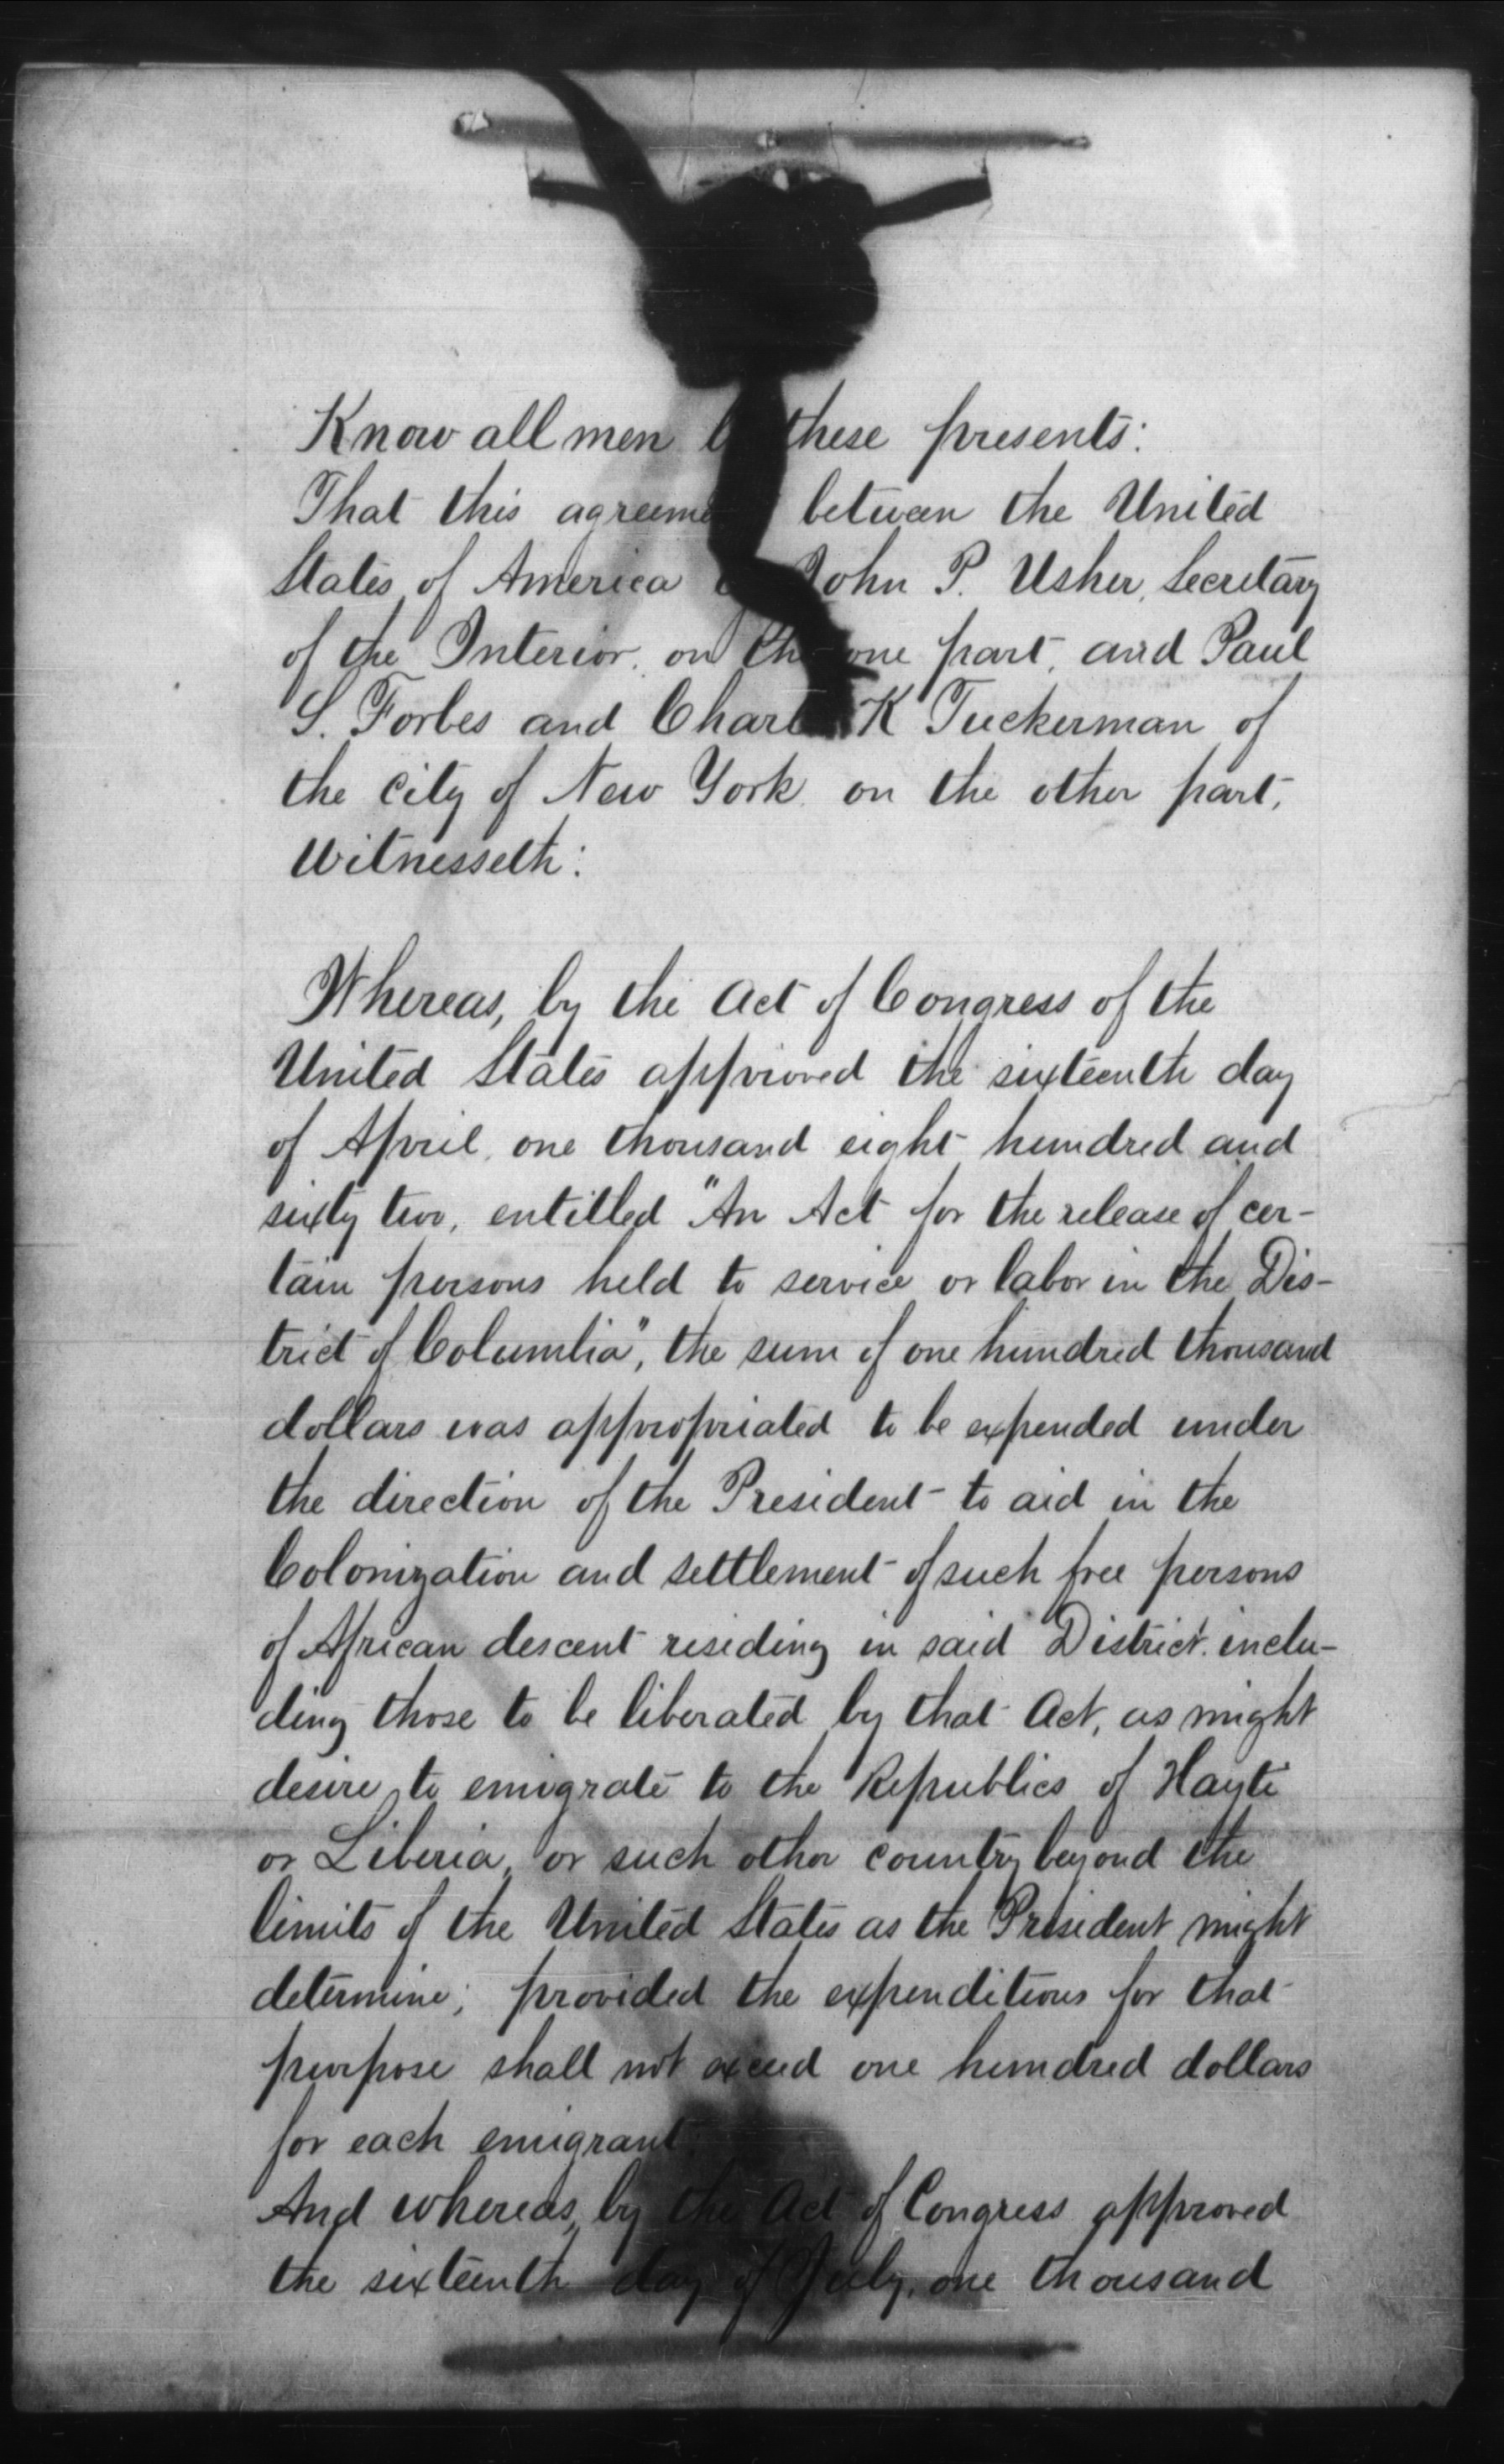 Know all men by these presents:
That this agreement between the United
States of America by John P. Usher, Secretary
of the Interior, on the one part, and Paul
S. Forbes and Charles K Tuckerman of
the City of New York, on the other part,
Witnesseth:
Whereas, by the Act of Congress of the
United States approved the sixteenth day
of April, one thousand eight hundred and
sixty two, entitled "An Act for the release of cer-
tain persons held to service or labor in the Dis-
trict of Columbia", the sum of one hundred thousand
dollars was appropriated to be expended under
the direction of the President to aid in the
Colonization and settlement of such free persons
of African descent residing in said District, inclu-
ding those to be liberated by that Act, as might
desire to emigrate to the Republics of Hayti
or Liberia, or such other country beyond the
limits of the United States as the President might
determine; provided the expenditions for that
purpose shall not exceed one hundred dollars
for each emigrant.
And whereas, by the Act of Congress approved
the sixteenth day of July, one thousand